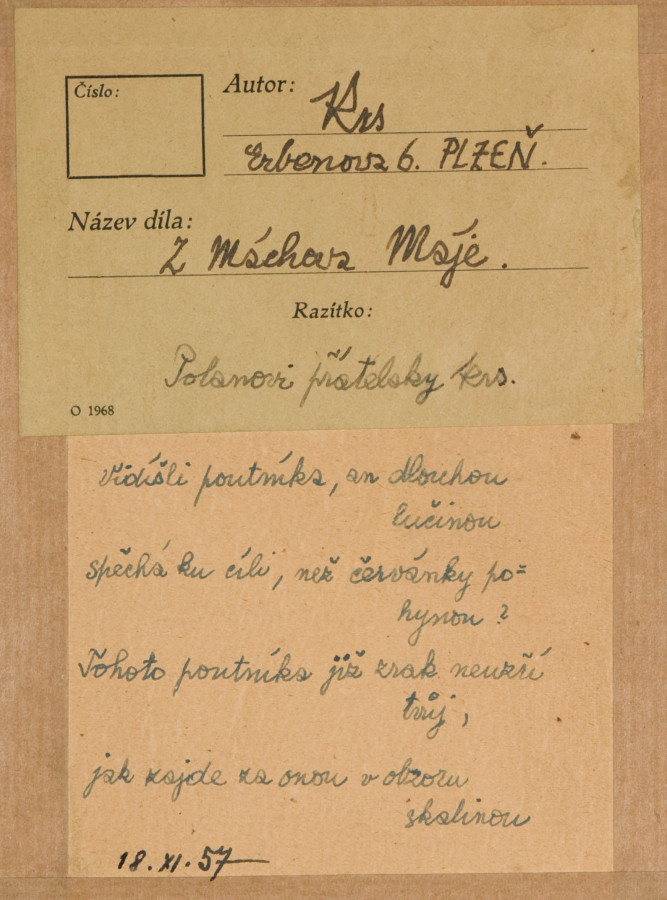 Číslo:
Autor:
Krs
Erbenova 6. PLZEŇ.
Název díla:
Z Máchova Máje.
Razítko:
Polanovi přátelsky Krs.
O 1968
Vidíšli poutníka, an dlouhou
lučinou
spěchá ku cíli, než červánky po=
hynou?
Tohoto poutníka již zrak neuzří
tvůj,
jak zajde za onou v obzoru
skalinou
18. XI. 57